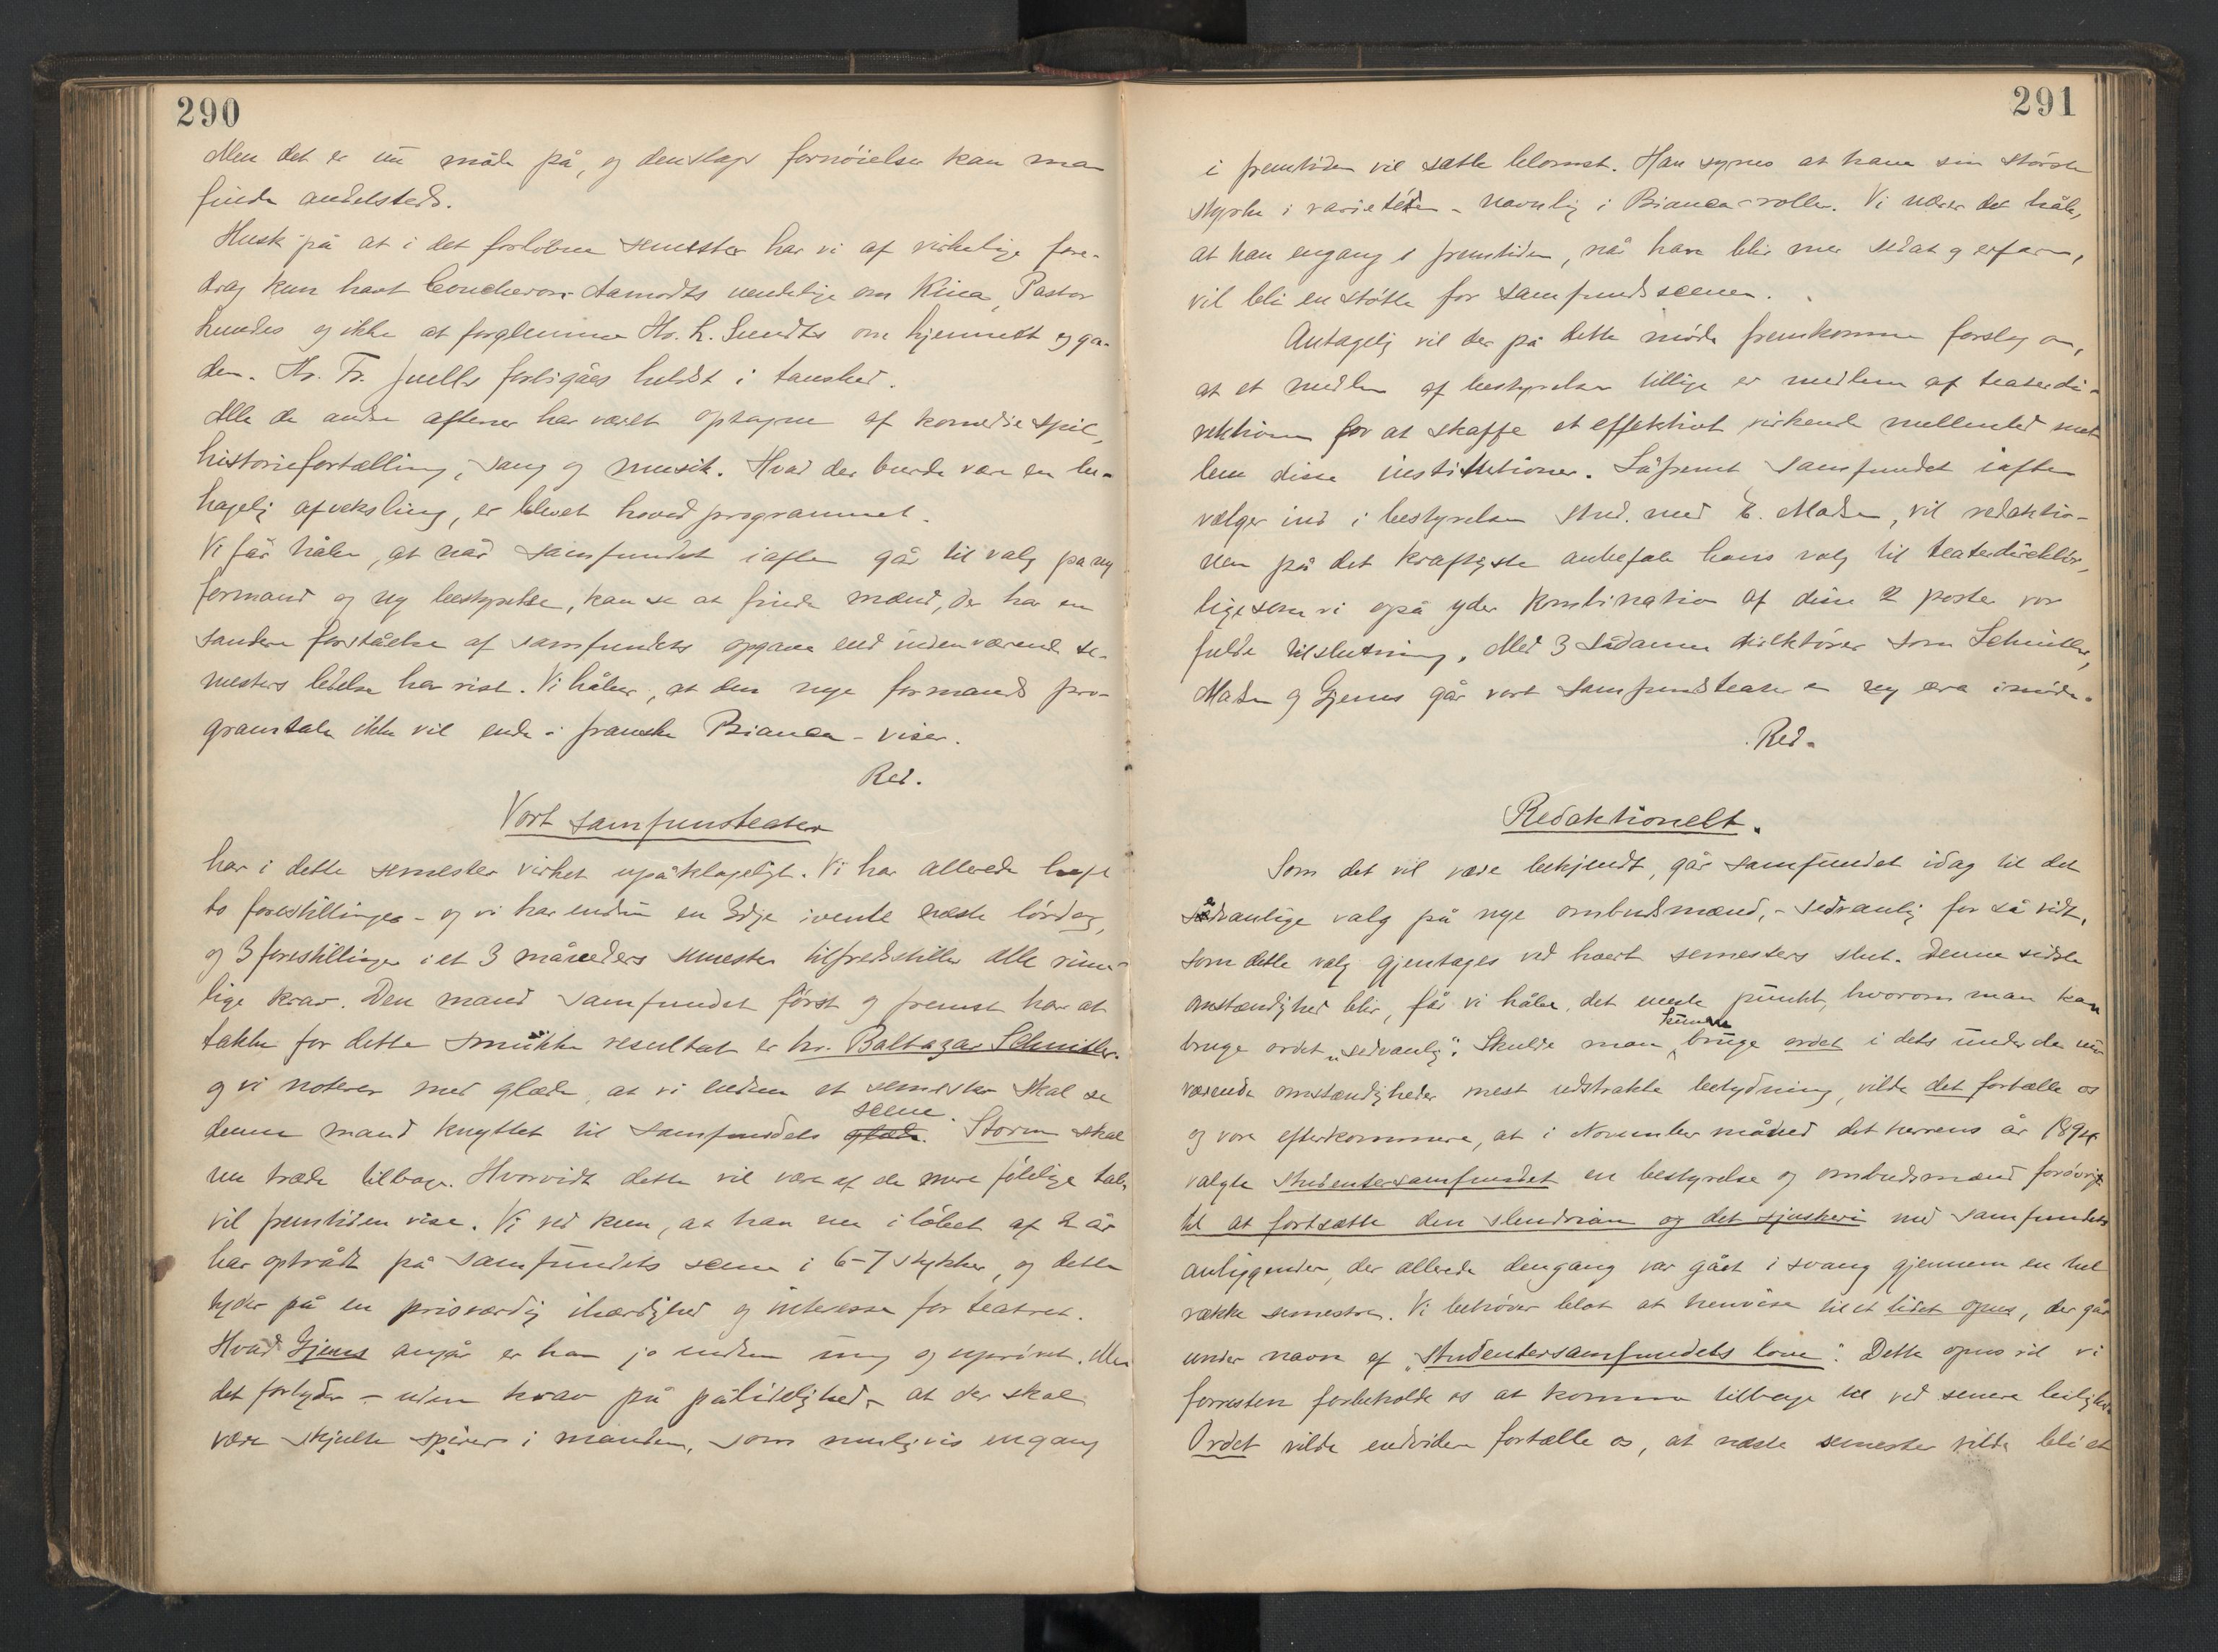 290
Men det er nu måde på, og denslags fornøielser kan man
finde andetsteds.
Husk på at i det forløbne semester har vi af virkelige fore-
drag kun havt Concheron Aamodts uendelige om Kina, Pastor
Lundes og ikke at forglemme Hr. L. Sundts om hjemmet og ga-
den. Hr. Fr. Juells forbigåes heldst i taushed.
Alle de andre aftener har været optagne af komediespil,
historiefortælling, sang og musik. Hvad der burde være en be-
hagelig afveksling, er blevet hovedprogrammet.
Vi får håbe, at når samfundet iaften går til valg på ny
formand og ny bestyrelse, kan se at finde mænd, der har en
sandere forståelse af samfundets opgave end indenværende se-
mesters ledelse har vist. Vi håber, at den nye formands pro-
gramtale ikke vil ende i franske Bianca-viser.
Red.
Vort samfunsteater
har i dette semester virket upåklageligt. Vi har allerede havt
to forestillinger - og vi har endnu en 3dje ivente næste lørdag,
og 3 forestillinger i et 3 måneders semester tilfredsstiller alle rime-
lige krav. Den mand samfundet først og fremst har at
takke for dette smukke resultat er hr. Baltazar Schnitler.
og vi noterer med glæde, at vi endnu et semester skal se
scene.
denne mand knyttet til samfundets glæde. Storm skal
nu træde tilbage. Hvorvidt dette vil være af de mere følelige tab,
vil fremtiden vise. Vi ved kun, at han nu i løbet af 2 år
har optrådt på samfundets scene i 6-7 stykker, og dette
tyder på en prisværdig ihærdighed og interesse for teatret.
Hvad Gjems angår er han jo endnu ung og uprøvet. Men
det forlyder - uden krav på pålidelighed - at der skal
være skjulte spirer i manden, som muligvis engang
291
i fremtiden vil sætte blomst. Han synes at have sin største
styrke i varietéen - navnlig i Bianca-roller. Vi nærer det håb,
at han engang i fremtiden, når han blir mer sedat og erfaren,
vil bli en støtte for samfundsscenen.
Antagelig vil der på dette møde fremkomme forslag om,
at et medlem af bestyrelsen tillige er medlem af teaterdi-
rektionen for at skaffe et effektivt virkende mellemled mel
lem disse institutioner. Såfremt samfundet iaften
vælger ind i bestyrelsen stud. med E. Madsen, vil redaktio-
nen på det kraftigste anbefale hans valg til teaterdirektør,
ligesom vi også yder kombination af disse 2 poster vor
fulde tilslutning. Med 3 sådanne direktører som Schnitler,
Madsen og Gjems går vort samfundsteater en ny æra imøde.
Red.
Redaktionelt.
Som det vil være bekjendt, går samfundet idag til det
sædvanlige valg på nye ombudsmænd, - sedvanlig for så vidt,
som dette valg gjentages ved hvert semesters slut. Denne sidste
omstændighed blir, får vi håbe, det eneste punkt, hvorom man kan
kunne
bruge ordet „sedvanlig“. Skulde man bruge ordet i dets under de nu-
værende omstændigheder mest udstrakte betydning, vilde det fortælle os
og vore efterkommere, at i November måned det herrens år 1894
valgte studentersamfundet en bestyrelse og ombudsmænd forøvrigt
til at fortsætte den slendrian og det sjuskeri med samfundets
anliggender, der allerede dengang var gået i svang gjennem en hel
række semestre. Vi behøver blot at henvise til et lidet opus, der går
under navn af „Studentersamfundets love“. Dette opus vil vi
forresten forbeholde os at komme tilbage til ved senere leilighed
Ordet vilde endvidere fortælle os, at næste semester vilde bli et